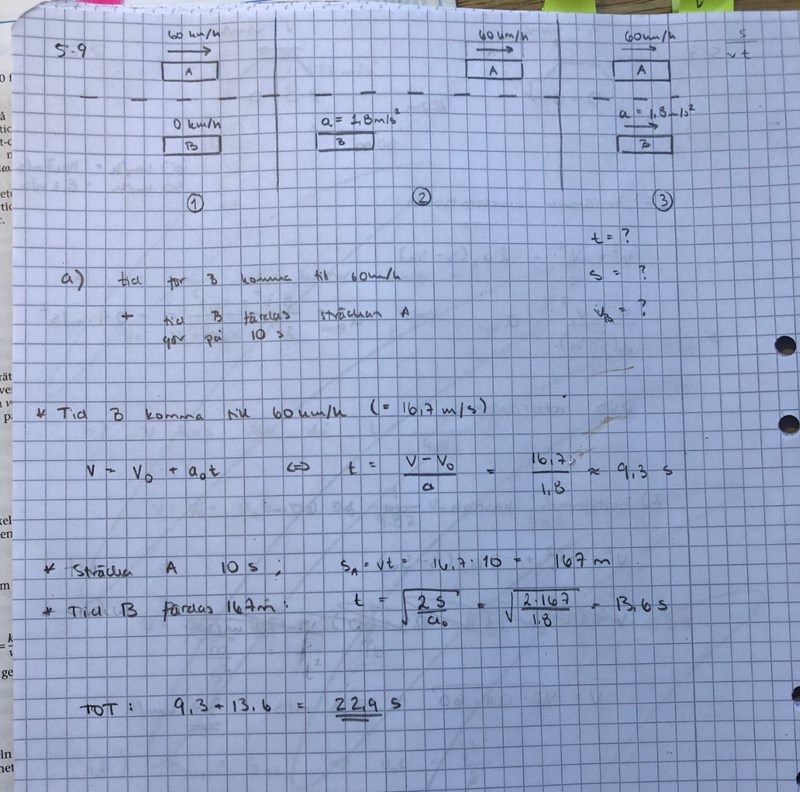 5.9
60 km/h
60 km/h
60 km/h
A
A
A
0 km/h
a = 1,8 m/s²
a = 1,8 m/s²
B
B
B
①
②
③
t = ?
s = ?
v_B = ?
a) tid för B komma till 60 km/h
+ tid B färdas sträckan A
gör på 10 s
* Tid B komma till 60 km/h (= 16,7 m/s)
v = v₀ + a₀t ⇔ t = (v - v₀)/a = 16,7/1,8 ≈ 9,3 s
* Sträcka A 10 s: s_A = vt = 16,7 · 10 = 167 m
* Tid B färdas 167 m: t = √(2s/a₀) = √(2·167/1.8) = 13,6 s
TOT: 9,3 + 13.6 = 22,9 s